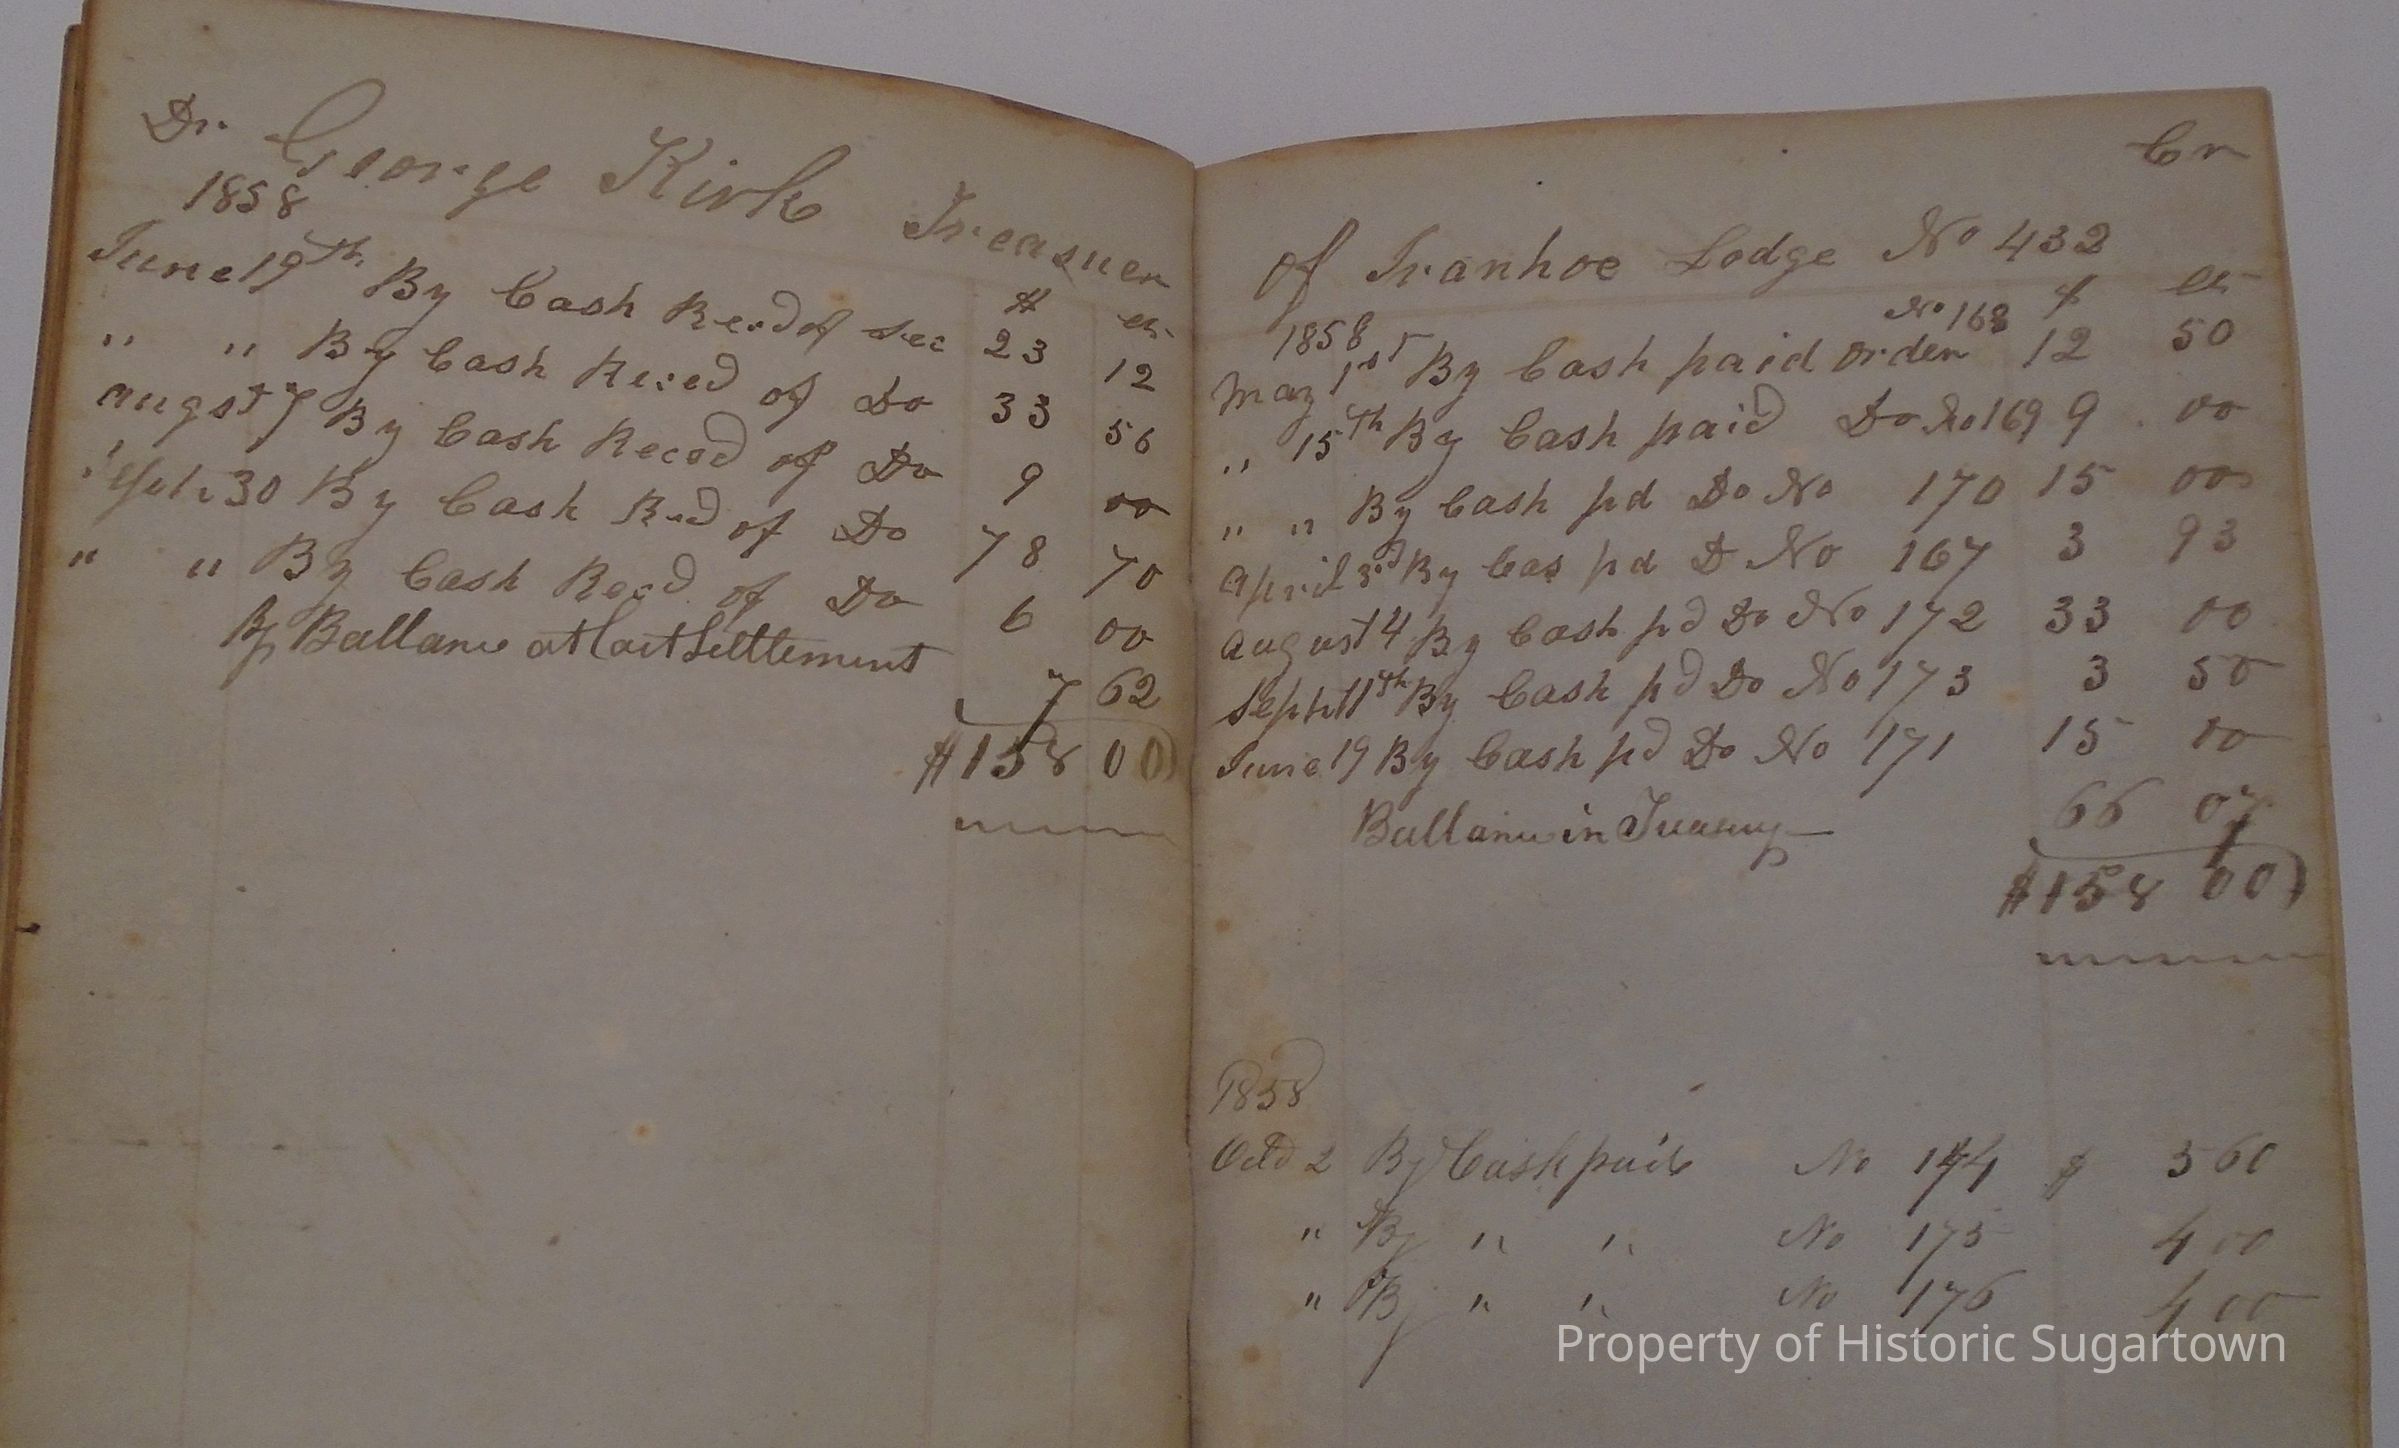 Dr George Kirk Treasuer
1858
$ cts
June 19th By Cash Recd of Sec 23 12
" " By Cash Reced of Do 33 56
Augst 7 By Cash Reced of Do 9 00
Sept 30 By Cash Recd of Do 78 70
" " By Cash Recd of Do 6 00
By Ballance at last Settlement 7 62
$158 00
Cr
of Ivanhoe Lodge No 432
1858 $ cts
May 1st By Cash paid order No 168 12 50
" 15th By Cash paid Do No 169 9 00
" " By Cash pd Do No 170 15 00
April 3rd By Cas pd D No 167 3 93
August 4 By Cash pd Do No 172 33 00
Sept 11th By Cash pd Do No 173 3 50
June 19 By Cash pd Do No 171 15 00
Ballance in Treasury 66 07
$158 00
1858
2 By Cash paid No 174 $ 3 60
" By " " No 175 4 00
" By " " No 176 4 00
Property of Historic Sugartown